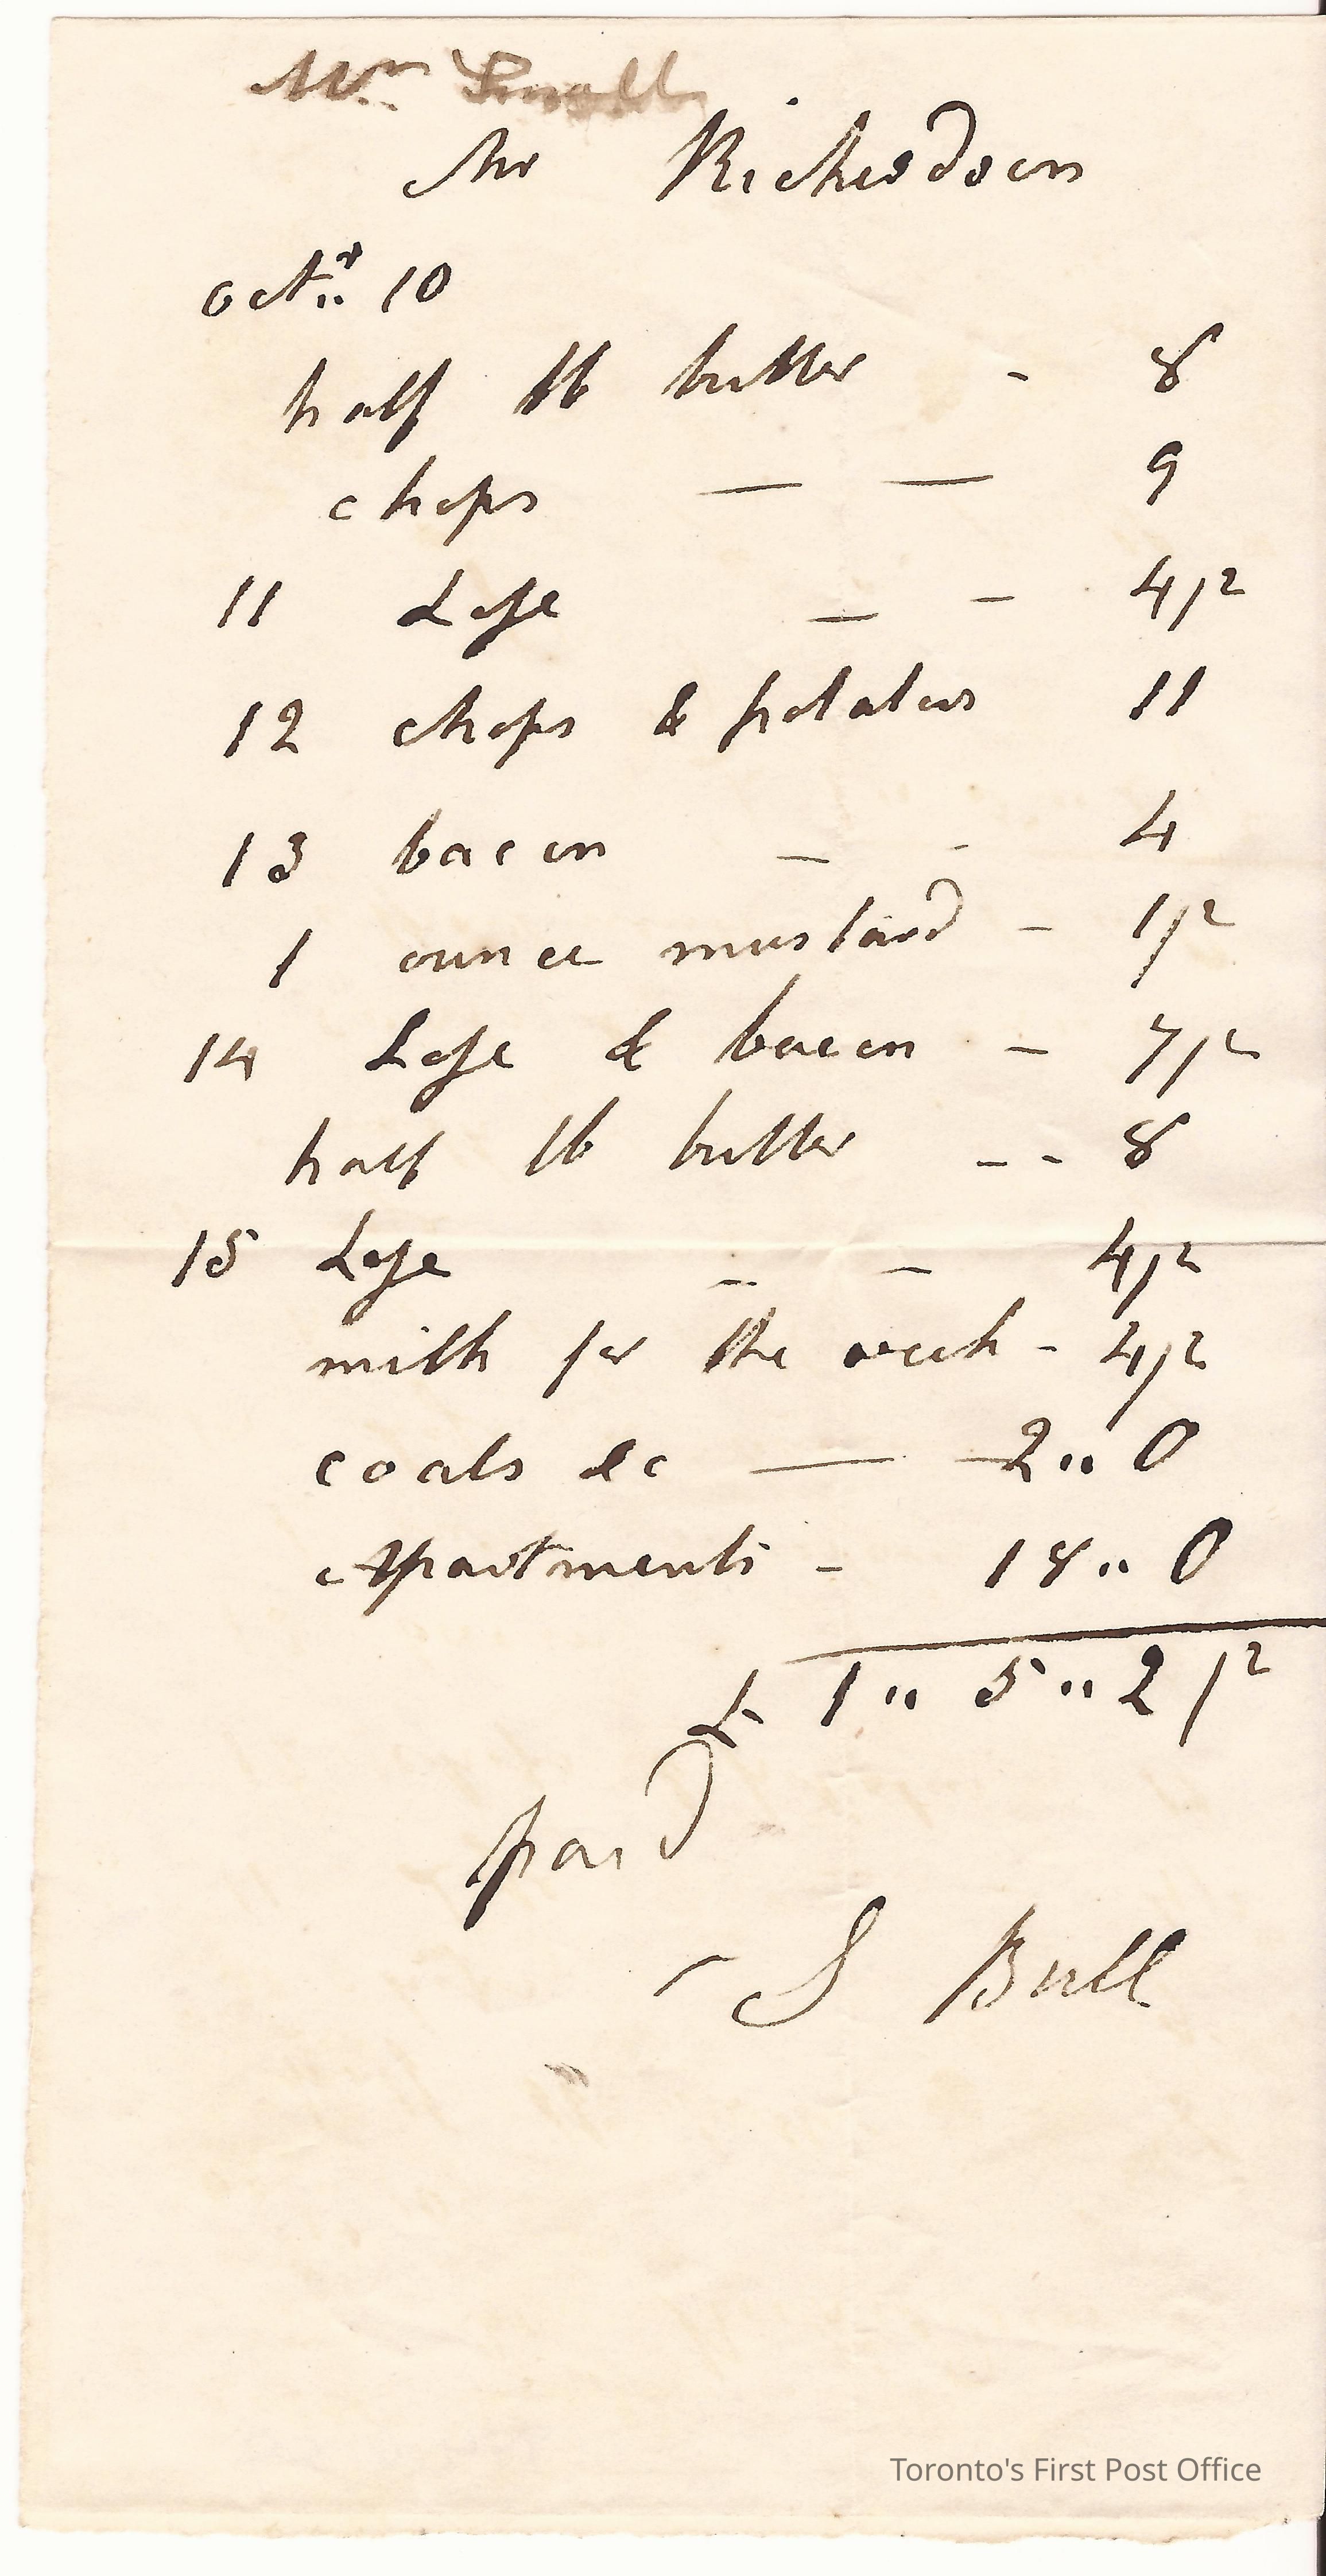 Wm Small
Mr Richardson
octr 10
half lb butter - 8
chops — — 9
11 Lofe — - 4/2
12 chops & potatoes 11
13 bacon — - 4
1 ounce mustard - 1/2
14 Lofe & bacon - 7/2
half lb butter - - 8
15 Lofe - - 4/2
milk for the week - 4/2
coals &c — - 2 " 0
apartments - 18 " 0
£ 1 " 5 " 2 /2
paid
- S Bull
Toronto's First Post Office